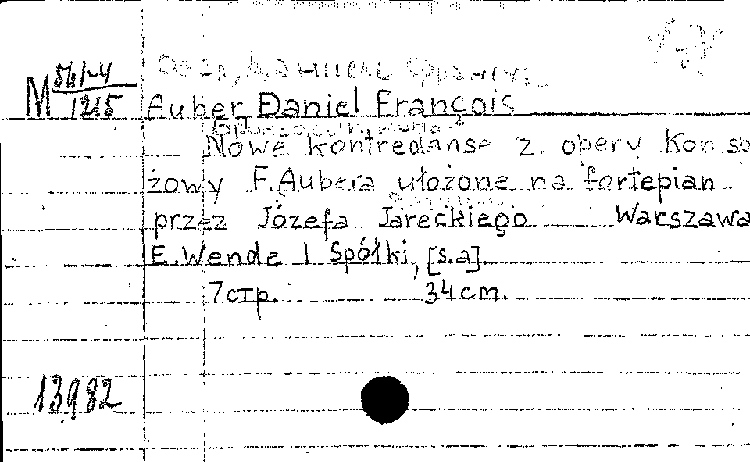 M 56/-4
1215
Auber, Daniel François
Nowe kontredanse z opery Kon so
żowy F. Aubera ułożone na fortepian
przez Józefa Jareckiego Warszawa
E. Wende I Spółki, [s.a].
7 стр. 34 cm.
13982